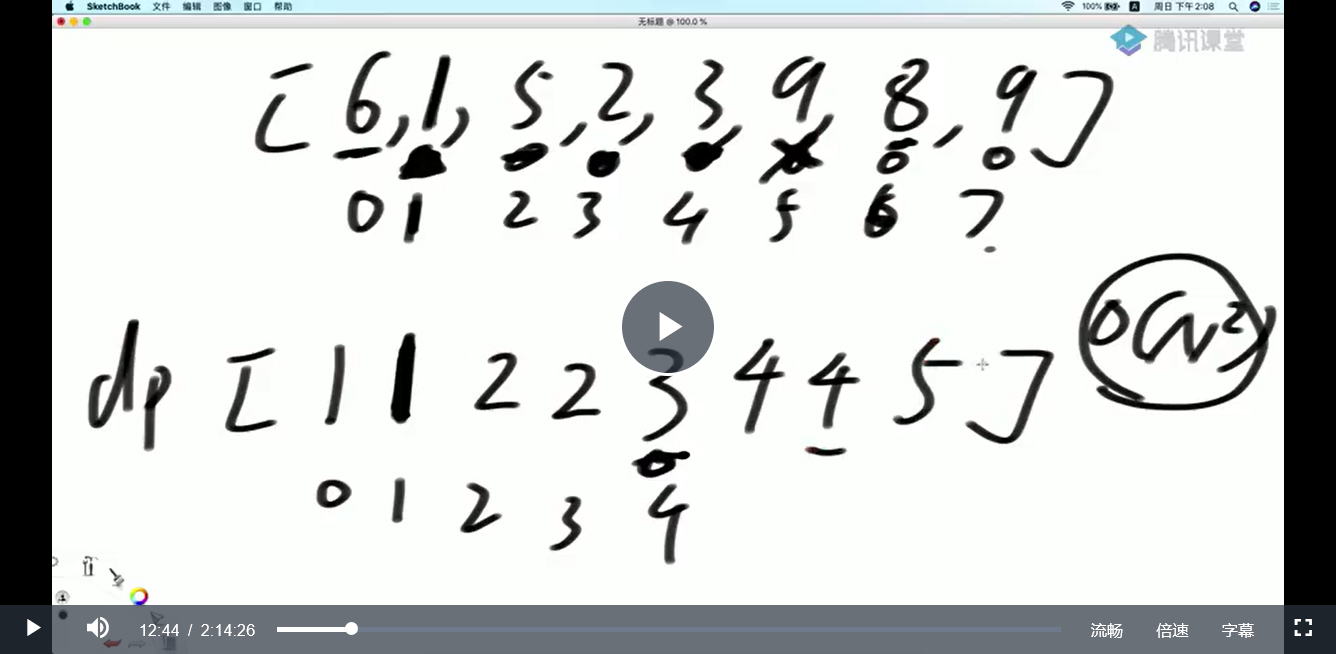 SketchBook 文件 编辑 图像 窗口 帮助 100% 周日 下午2:08
无标题 @ 100.0 %
腾讯课堂
[6,1,5,2,3,9,8,9]
0 1 2 3 4 5 6 7
O(N²)
dp [1 1 2 2 3 4 4 5]
0 1 2 3 4
12:44 / 2:14:26 流畅 倍速 字幕